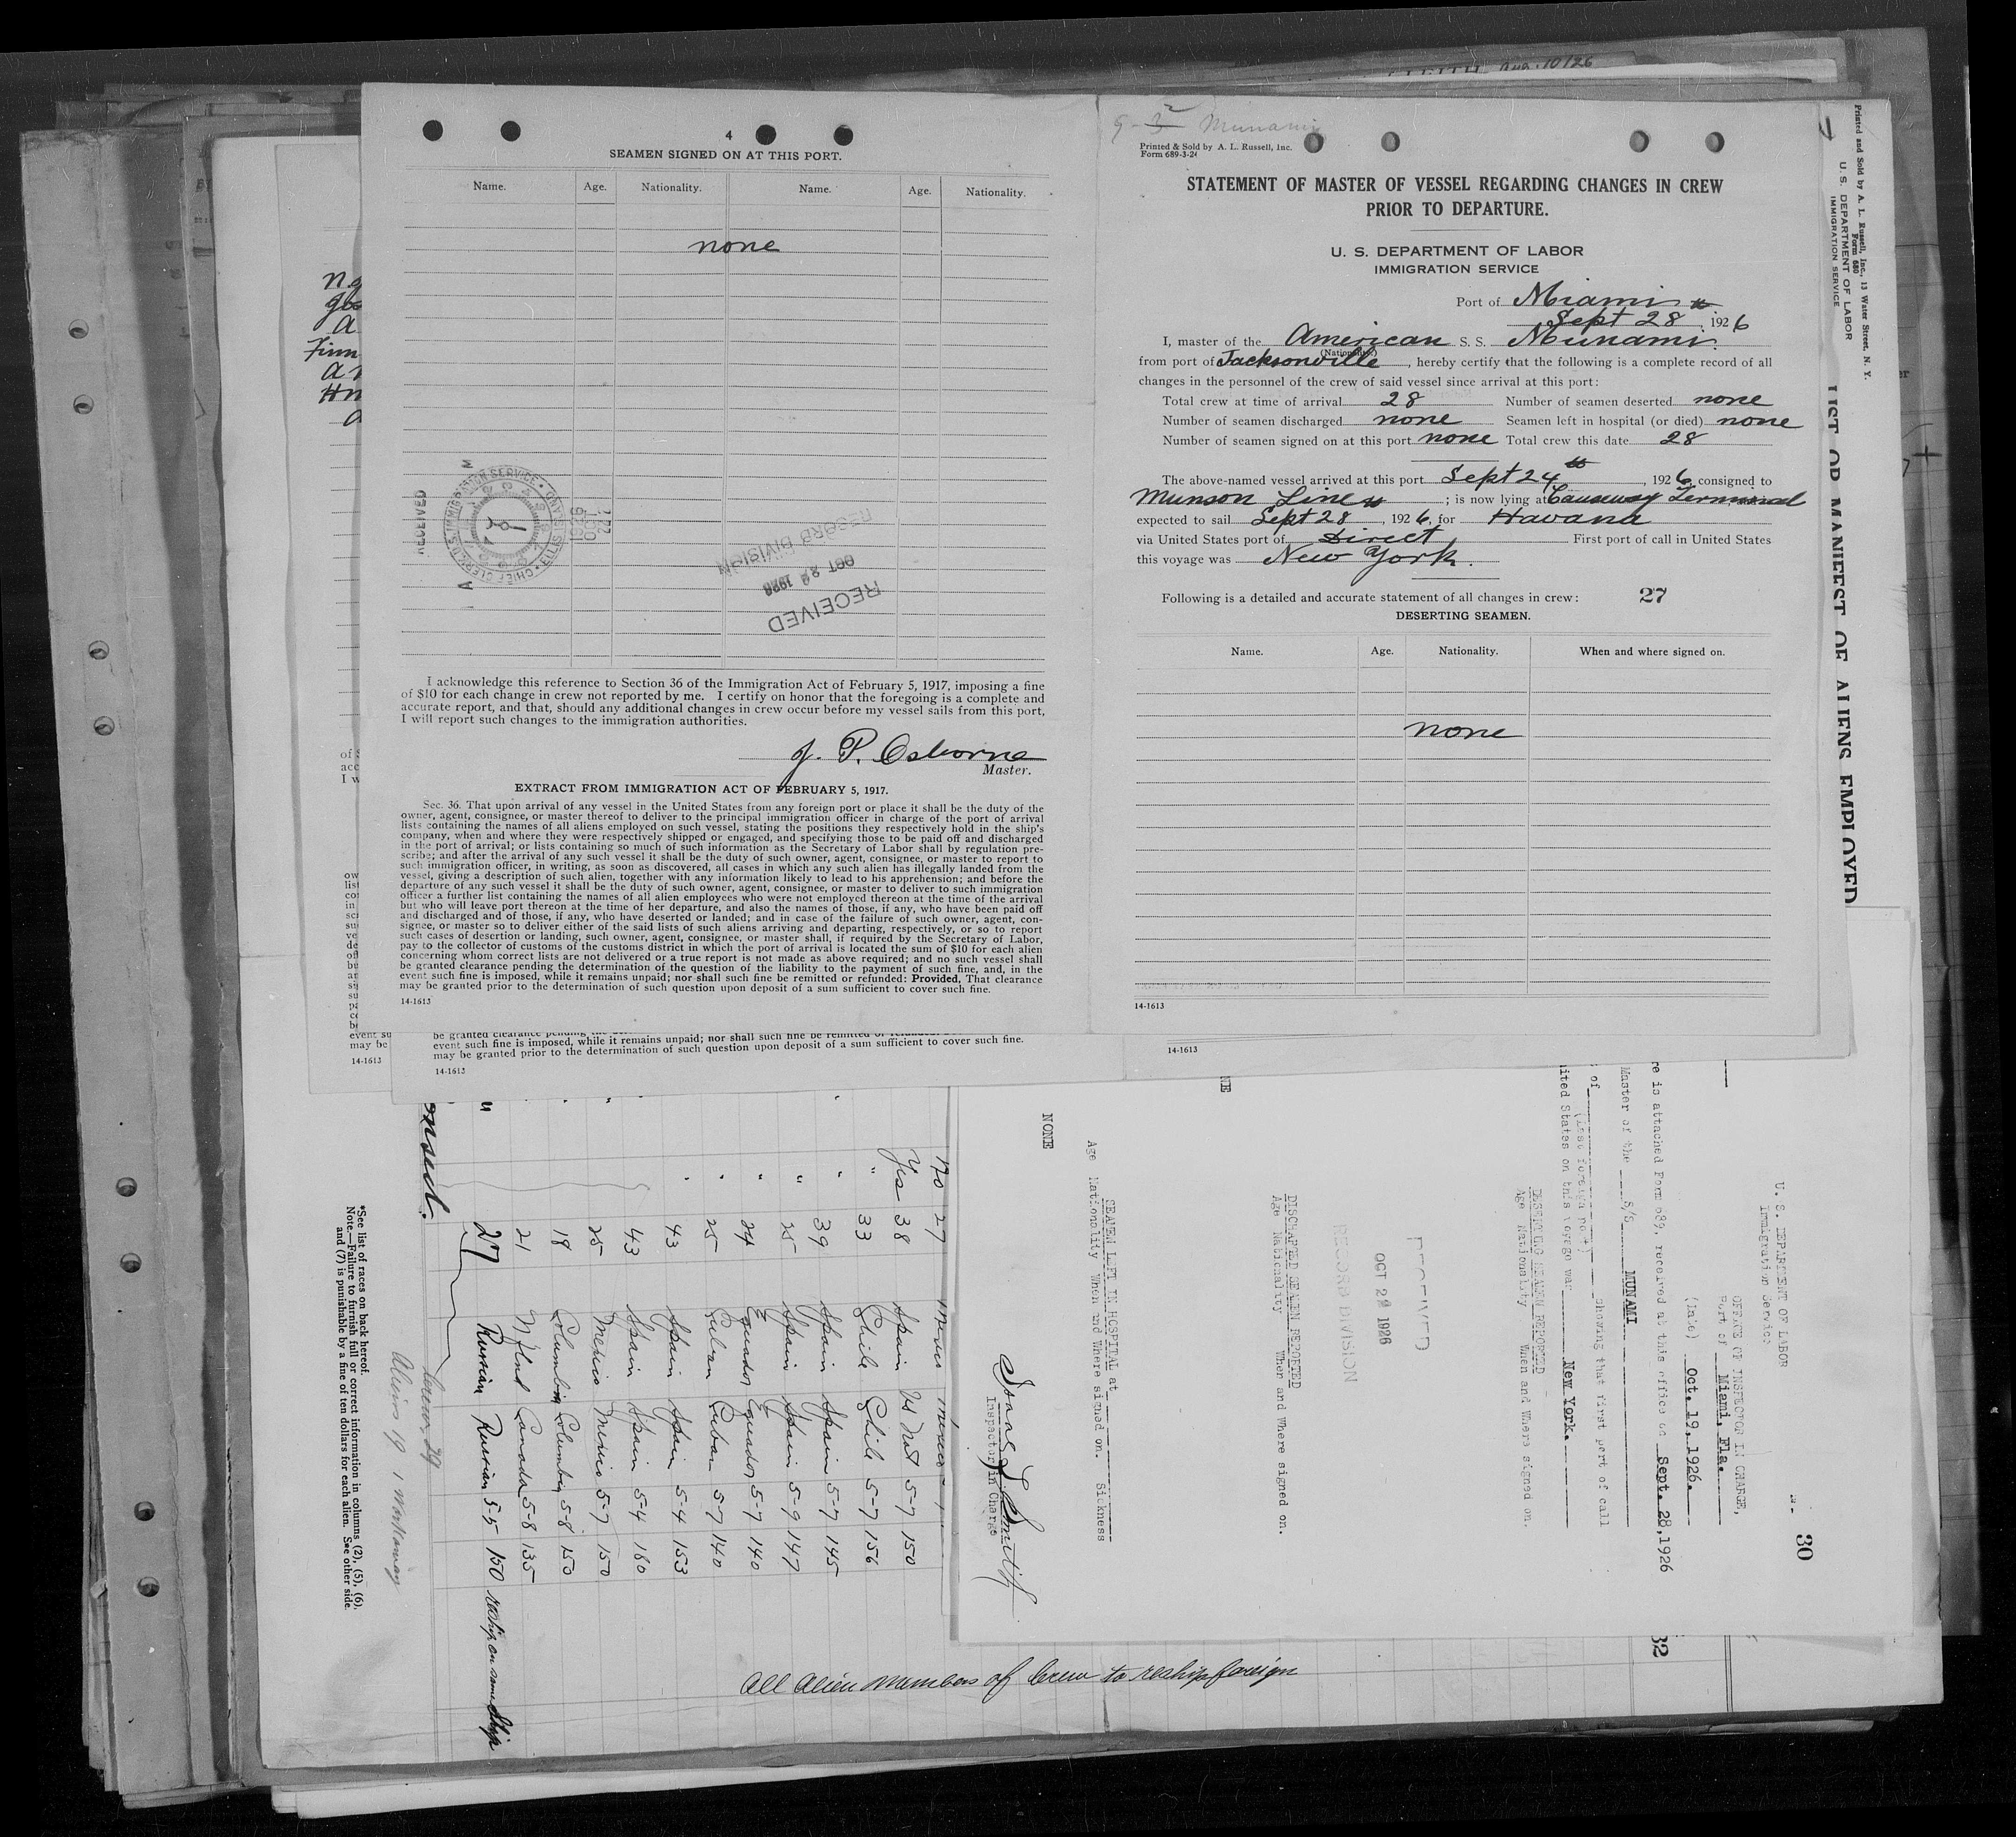 Aug. 10/26
4
SEAMEN SIGNED ON AT THIS PORT.
Name. Age. Nationality. Name. Age. Nationality.
none
RECEIVED
U.S. IMMIGRATION SERVICE
ELLIS ISLAND
CHIEF CLERK
RECEIVED
OCT 22 1926
RECORD DIVISION
I acknowledge this reference to Section 36 of the Immigration Act of February 5, 1917, imposing a fine
of $10 for each change in crew not reported by me. I certify on honor that the foregoing is a complete and
accurate report, and that, should any additional changes in crew occur before my vessel sails from this port,
I will report such changes to the immigration authorities.
J. P. Osborne
Master.
EXTRACT FROM IMMIGRATION ACT OF FEBRUARY 5, 1917.
Sec. 36. That upon arrival of any vessel in the United States from any foreign port or place it shall be the duty of the
owner, agent, consignee, or master thereof to deliver to the principal immigration officer in charge of the port of arrival
lists containing the names of all aliens employed on such vessel, stating the positions they respectively hold in the ship's
company, when and where they were respectively shipped or engaged, and specifying those to be paid off and discharged
in the port of arrival; or lists containing so much of such information as the Secretary of Labor shall by regulation pre-
scribe; and after the arrival of any such vessel it shall be the duty of such owner, agent, consignee, or master to report to
such immigration officer, in writing, as soon as discovered, all cases in which any such alien has illegally landed from the
vessel, giving a description of such alien, together with any information likely to lead to his apprehension; and before the
departure of any such vessel it shall be the duty of such owner, agent, consignee, or master to deliver to such immigration
officer a further list containing the names of all alien employees who were not employed thereon at the time of the arrival
but who will leave port thereon at the time of her departure, and also the names of those, if any, who have been paid off
and discharged and of those, if any, who have deserted or landed; and in case of the failure of such owner, agent, con-
signee, or master so to deliver either of the said lists of such aliens arriving and departing, respectively, or so to report
such cases of desertion or landing, such owner, agent, consignee, or master shall, if required by the Secretary of Labor,
pay to the collector of customs of the customs district in which the port of arrival is located the sum of $10 for each alien
concerning whom correct lists are not delivered or a true report is not made as above required; and no such vessel shall
be granted clearance pending the determination of the question of the liability to the payment of such fine, and, in the
event such fine is imposed, while it remains unpaid; nor shall such fine be remitted or refunded: Provided, That clearance
may be granted prior to the determination of such question upon deposit of a sum sufficient to cover such fine.
14-1613
Munami
Printed & Sold by A. L. Russell, Inc.
Form 689-3-24
STATEMENT OF MASTER OF VESSEL REGARDING CHANGES IN CREW
PRIOR TO DEPARTURE.
U. S. DEPARTMENT OF LABOR
IMMIGRATION SERVICE
Port of Miami
Sept 28, 1926
I, master of the American S. S. Munami
(Nationality)
from port of Jacksonville, hereby certify that the following is a complete record of all
changes in the personnel of the crew of said vessel since arrival at this port:
Total crew at time of arrival 28 Number of seamen deserted none
Number of seamen discharged none Seamen left in hospital (or died) none
Number of seamen signed on at this port none Total crew this date 28
The above-named vessel arrived at this port Sept 24th, 1926, consigned to
Munson Line; is now lying at Causeway Terminal
expected to sail Sept 28, 1926, for Havana
via United States port of Direct First port of call in United States
this voyage was New York.
Following is a detailed and accurate statement of all changes in crew: 27
DESERTING SEAMEN.
Name. Age. Nationality. When and where signed on.
none
14-1613
Printed and Sold by A. L. Russell, Inc., 13 Water Street, N. Y.
Form 680
U. S. DEPARTMENT OF LABOR
IMMIGRATION SERVICE
LIST OR MANIFEST OF ALIENS EMPLOYED
be granted clearance pending the
event such fine is imposed, while it remains unpaid; nor shall such fine be remitted or
may be granted prior to the determination of such question upon deposit of a sum sufficient to cover such fine.
14-1613
14-1613
event su
may be
14-1613
30
U. S. DEPARTMENT OF LABOR
Immigration Service
OFFICE OF INSPECTOR IN CHARGE,
Port of Miami, Fla.
(Date) Oct. 19, 1926.
re is attached Form 689, received at this office on Sept. 28, 1926
Master of the S/S MUNAMI
of showing that first port of call
(Last foreign port)
ited States on this voyage was New York.
DESERTING SEAMEN REPORTED
Age Nationality When and Where signed on.
RECEIVED
OCT 22 1926
RECORD DIVISION
DISCHARGED SEAMEN REPORTED
Age Nationality When and Where signed on.
SEAMEN LEFT IN HOSPITAL at
Age Nationality When and Where signed on. Sickness
NONE
Inspector in Charge
32
No 27
Yes 38 Spain 5-7 150
" 33 Chile Chile 5-7 156
" 39 Spain Spain 5-7 145
" 25 Spain Spain 5-9 147
" 24 Equador Equador 5-7 140
" 25 Cuban Cuban 5-7 140
" 43 Spain Spain 5-4 153
43 Spain Spain 5-4 160
25 Mexico Mexico 5-7 150
18 Columbia Columbia 5-8 150
21 Nflnd Canada 5-8 135
27 Russian Russian 5-5 150 reship on same ship
Crew 29
Aliens 19 1 Workaway
*See list of races on back hereof.
Note.—Failure to furnish full or correct information in columns (2), (5), (6),
and (7) is punishable by a fine of ten dollars for each alien. See other side.
All Alien members of Crew to reship foreign